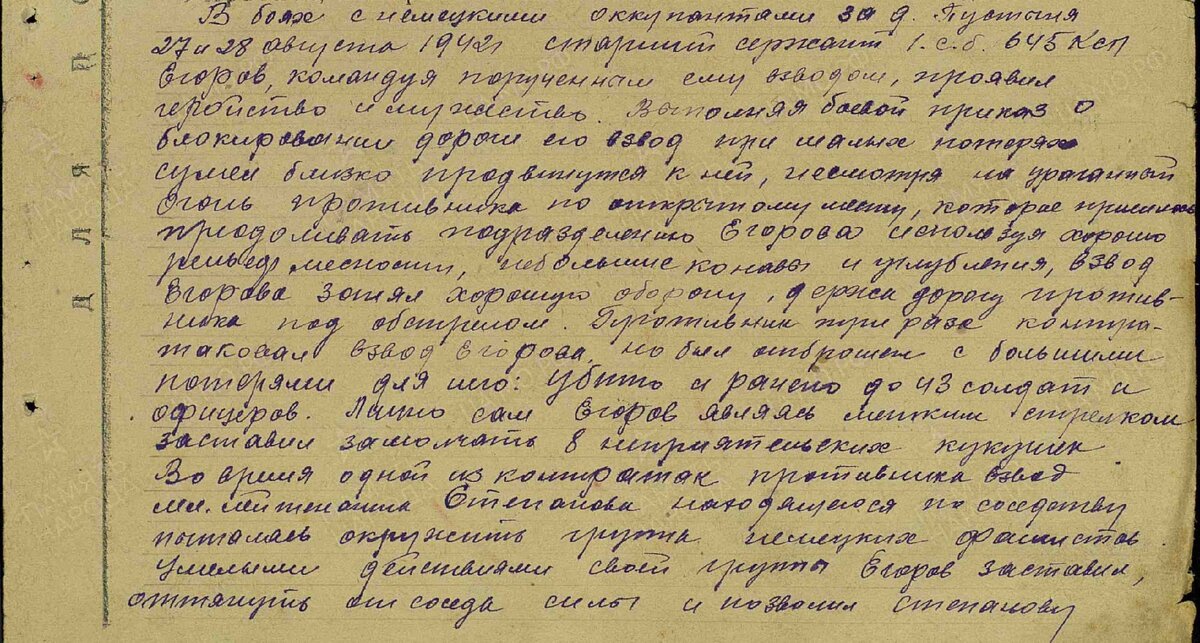 В боях с немецкими оккупантами за д. Пустыня
27 и 28 августа 1942г старший сержант 1.с.б. 645 Ксп
Егоров, командуя порученным ему взводом, проявил
геройство и мужество. Выполняя боевой приказ о
блокировании дороги его взвод при малых потерях
сумел близко продвинутся к ней, несмотря на ураганный
огонь противника по открытому месту, которое пришлось
преодоливать подразделению Егорова используя хорошо
рельеф месности, небольшие канавы и углубления, взвод
Егорова занял хорошую оборону, держа дорогу против-
ника под обстрелом. Противник три раза контра-
таковал взвод Егорова, но был отброшен с большими
потерями для него: убито и ранено до 43 солдат и
офицеров. Лично сам Егоров являясь метким стрелком
заставил замолчать 8 неприятельских кукушек
Во время одной из контратак противника взвод
мл. лейтенанта Степанова находящегося по соседству
пыталась окружить группа немецких фашистов.
Умелыми действиями своей группы Егоров заставил,
оттянуть от соседа силы и позволил Степанову
ДЛЯ